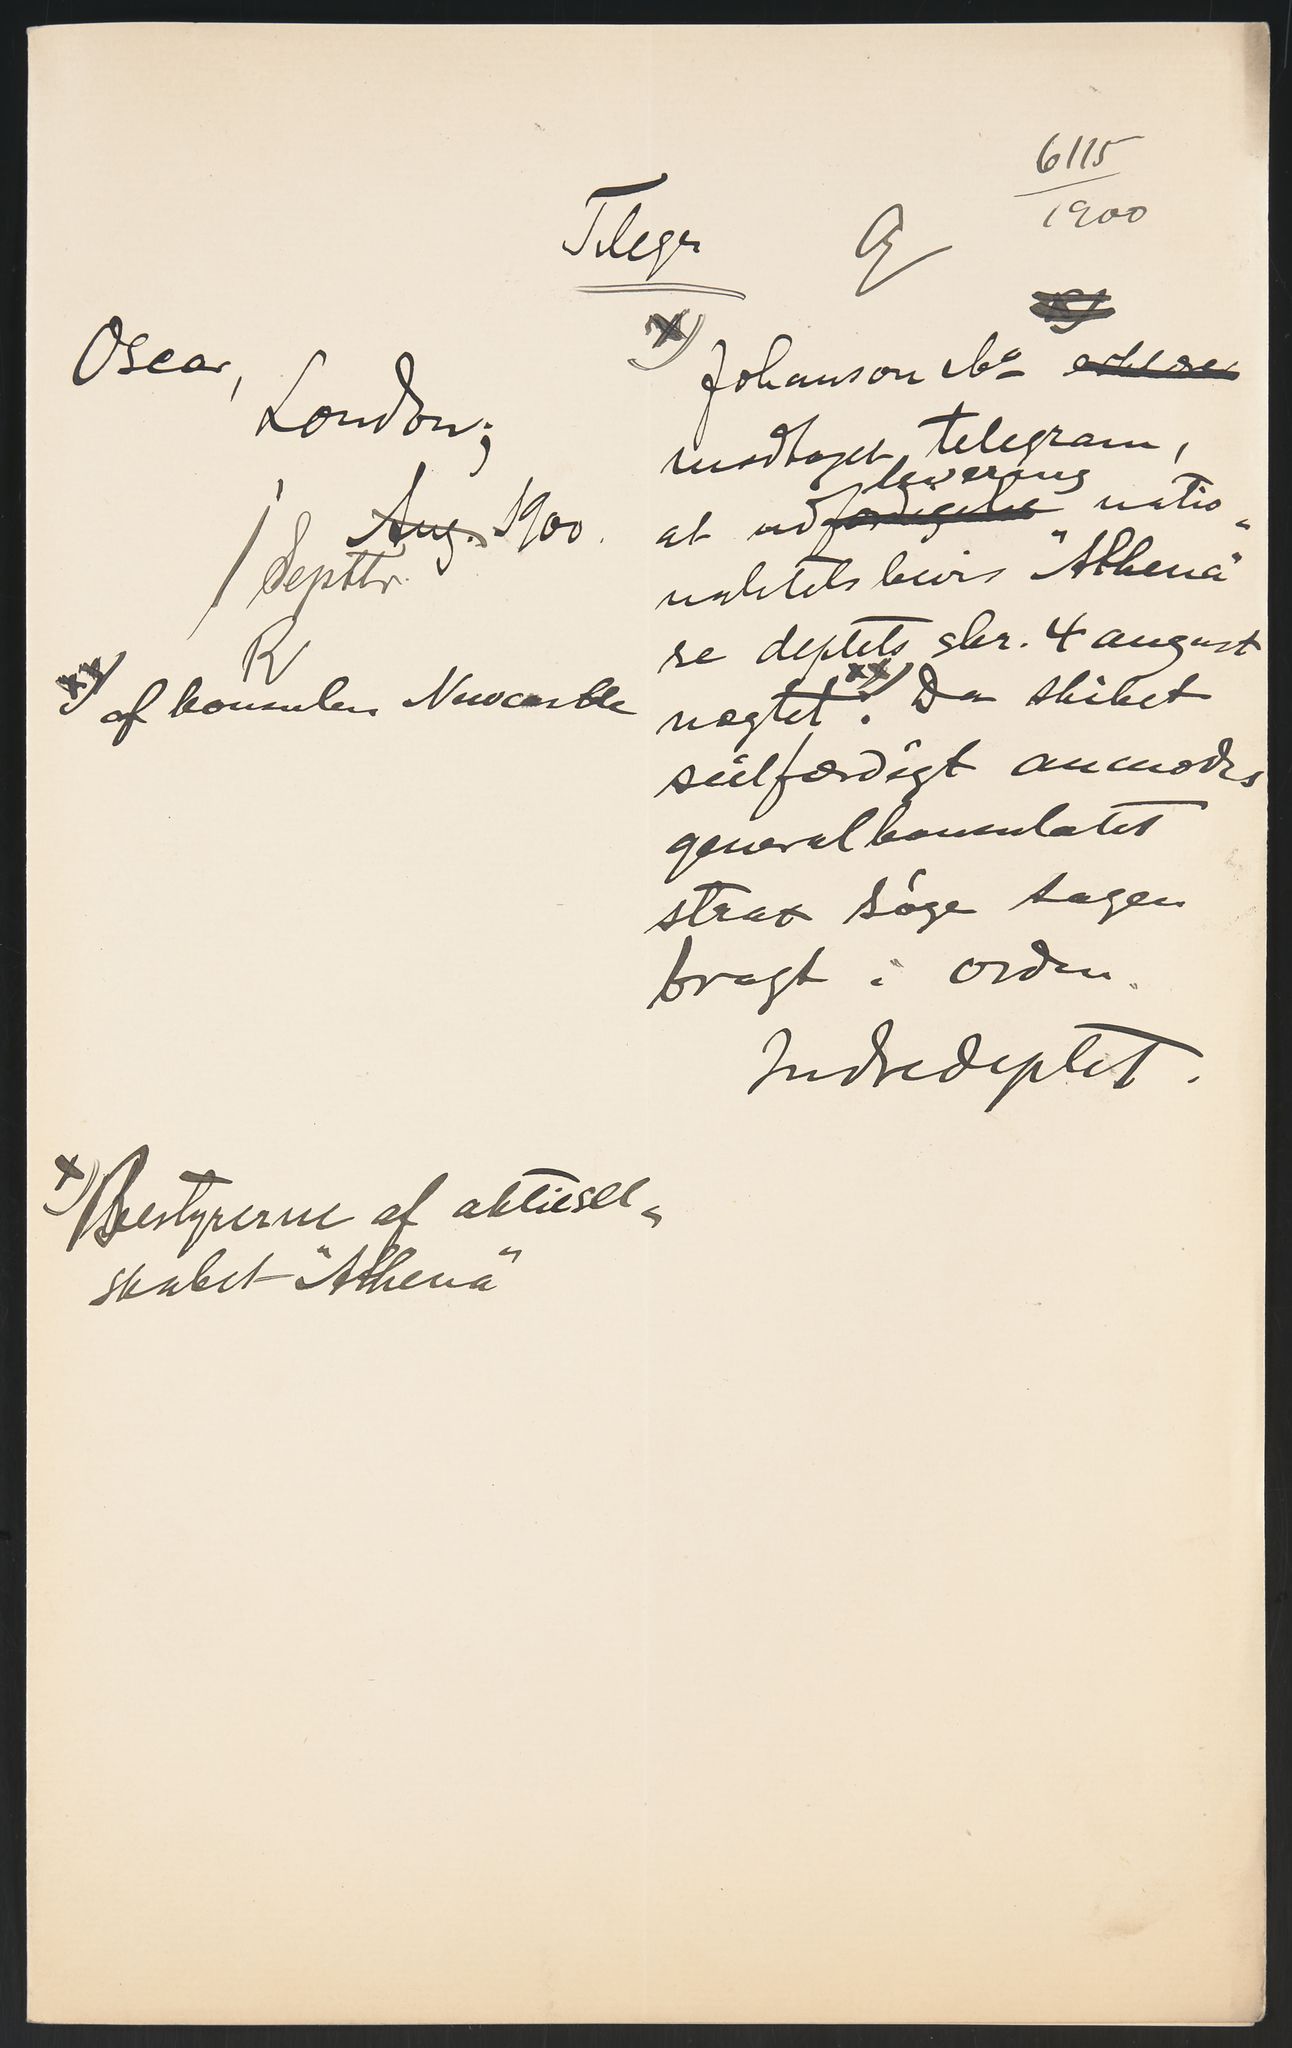 6115
1900
Telegr
Oscar,
London;
1 Aug. 1900.
Septbr.
R
xx) af konsulen Newcastle
x) Johanson & Co
modtaget telegram,
at udfærdigelse levering natio-
nalitetsbevis "Athena"
se deptets skr. 4 august
nægtet xx). Da skibet
seilfærdigt anmodes
generalkonsulatet
strax søge sagen
bragt i orden.
Indredeptet.
x) Bestyrerne af aktiesel-
skabet "Athena"